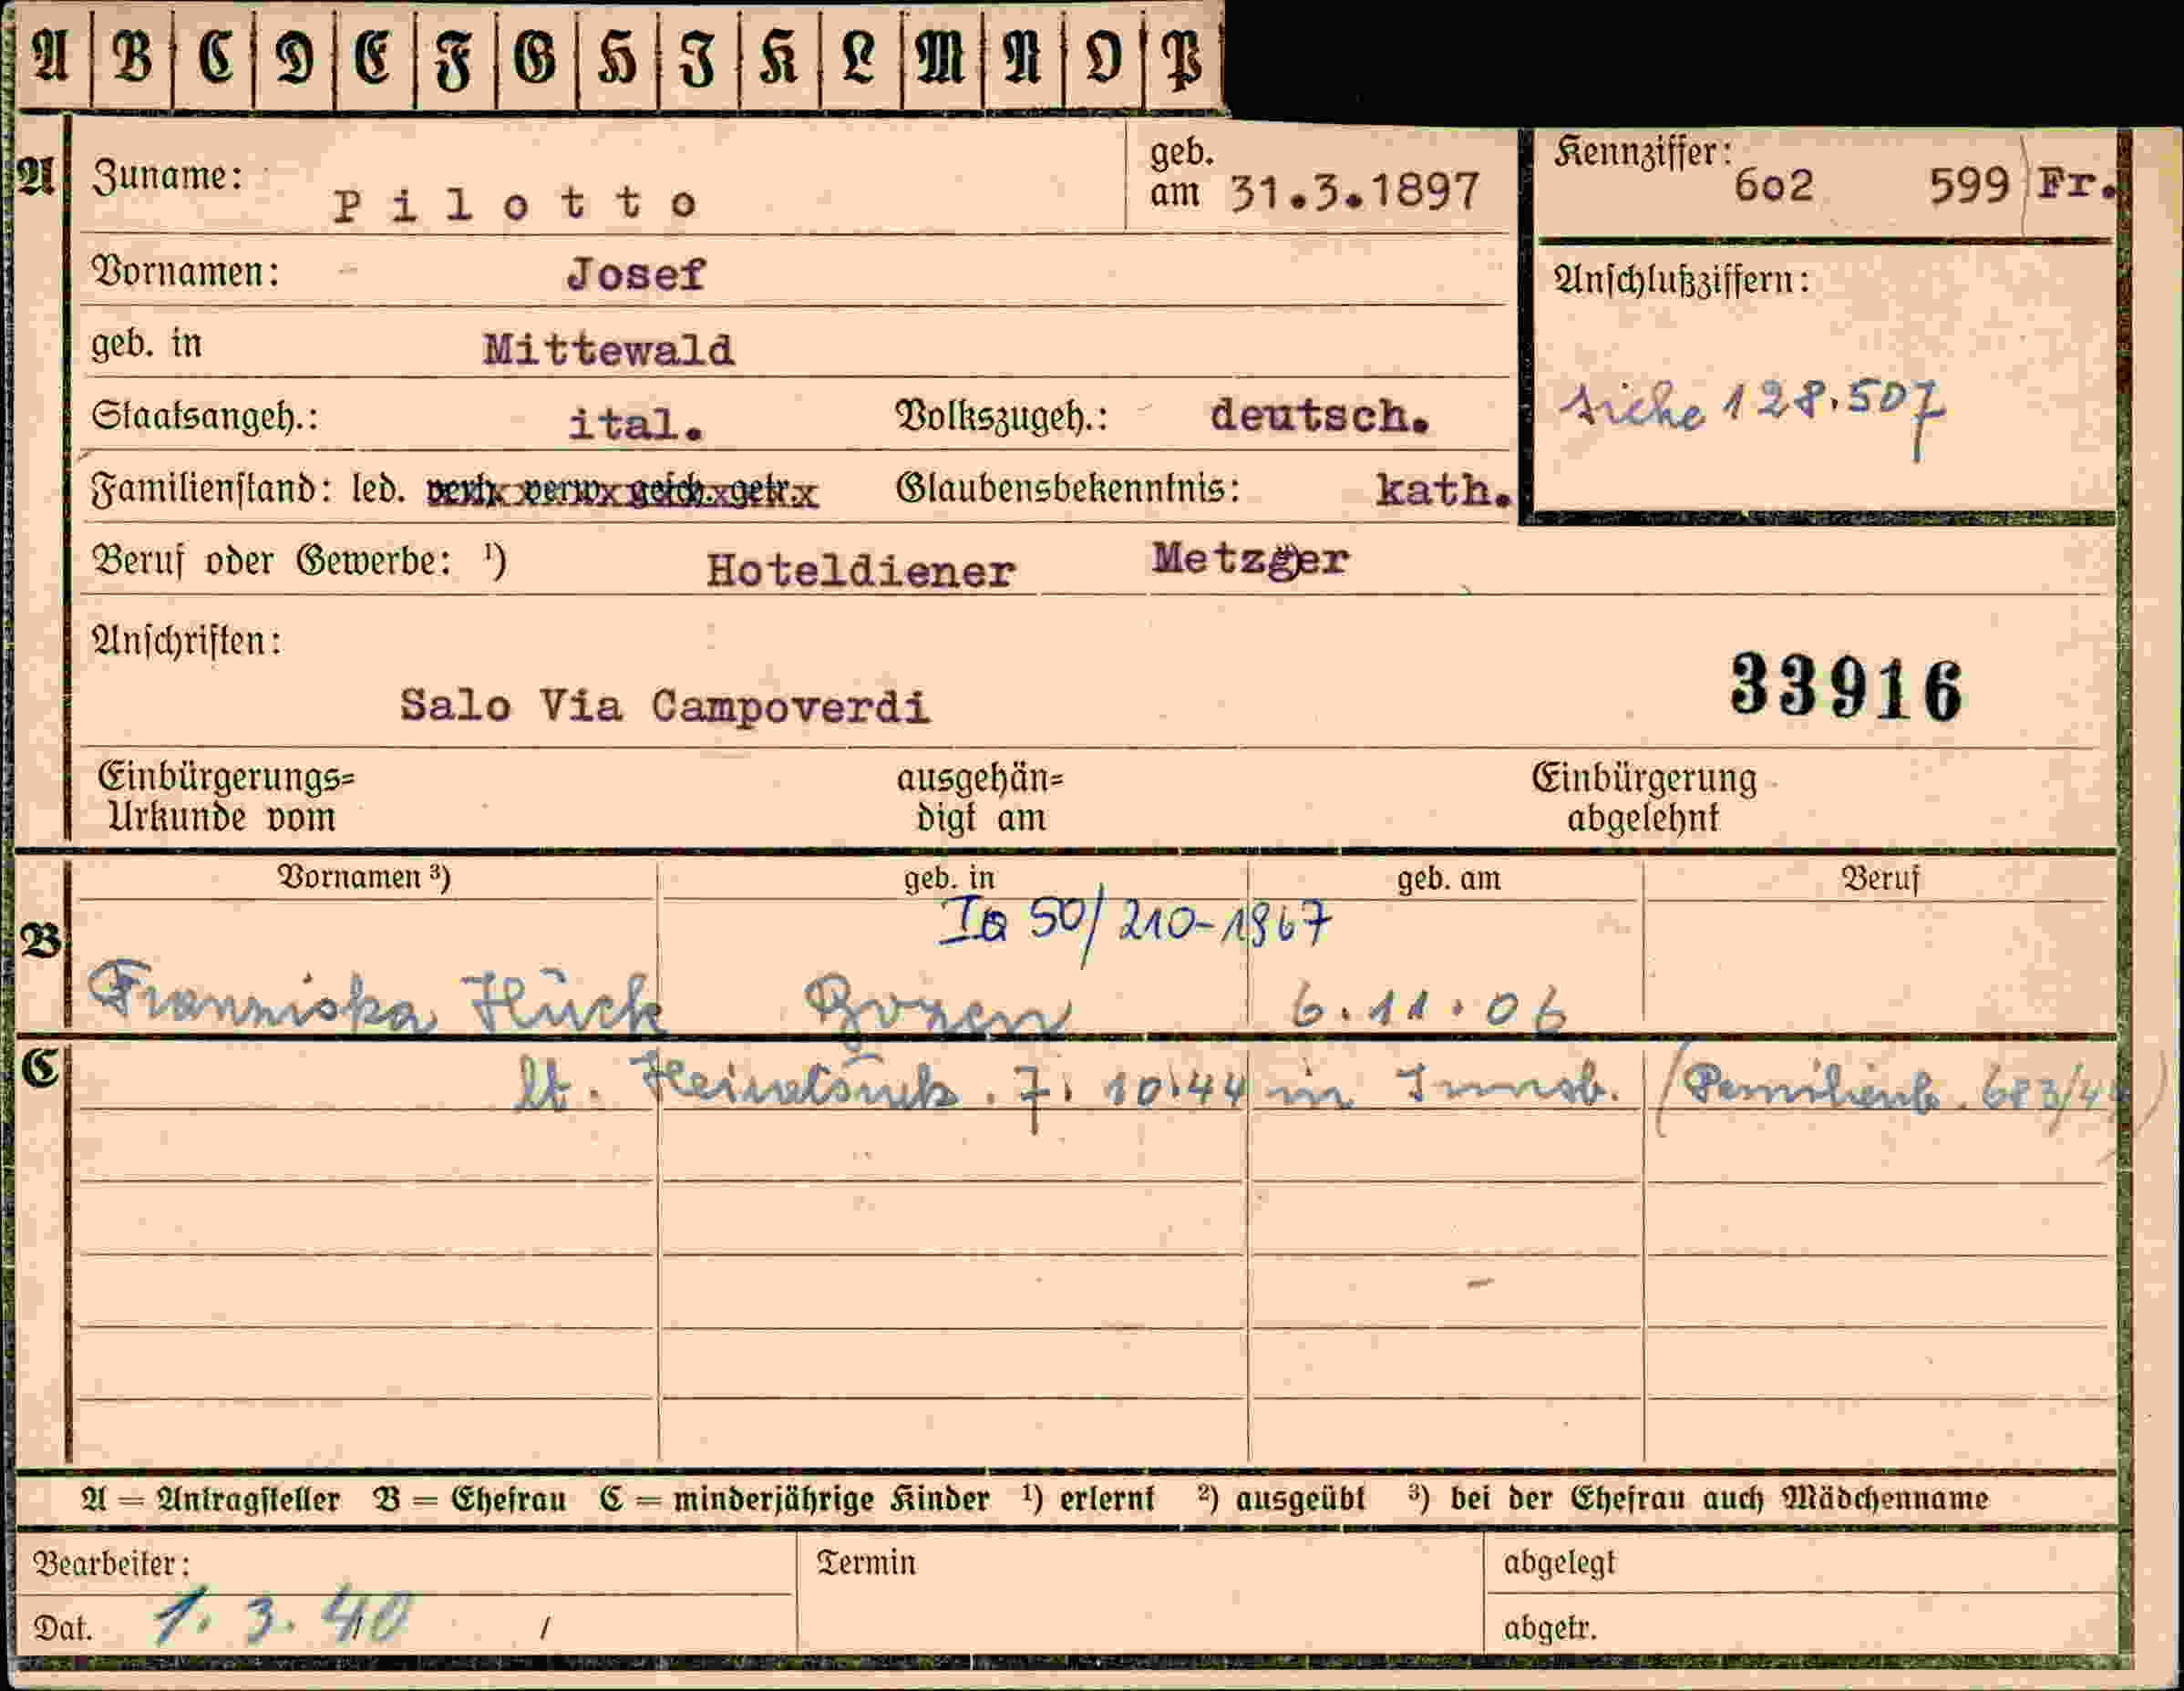 A B C D E F G H I K L M N O P
A
Zuname: Pilotto
geb. am 31.3.1897
Kennziffer: 6o2 599 Fr.
Vornamen: Josef
Anschlußziffern:
geb. in Mittewald
siehe 128.507
Staatsangeh.: ital. Volkszugeh.: deutsch.
Familienstand: led. verh. verw. gesch. getr. Glaubensbekenntnis: kath.
Beruf oder Gewerbe: ¹) Hoteldiener Metzger
Anschriften:
Salo Via Campoverdi
33916
Einbürgerungs=
Urkunde vom
ausgehän=
digt am
Einbürgerung
abgelehnt
Vornamen ³) geb. in geb. am Beruf
Ia 50/210-1967
B
Franziska Hück Bozen 6.11.06
C
lt. Heiratsurk. 7.10.44 in Innsb. (Familienb. 683/44)
A = Antragsteller B = Ehefrau C = minderjährige Kinder ¹) erlernt ²) ausgeübt ³) bei der Ehefrau auch Mädchenname
Bearbeiter:
Termin
abgelegt
Dat. 1.3.40 /
abgetr.